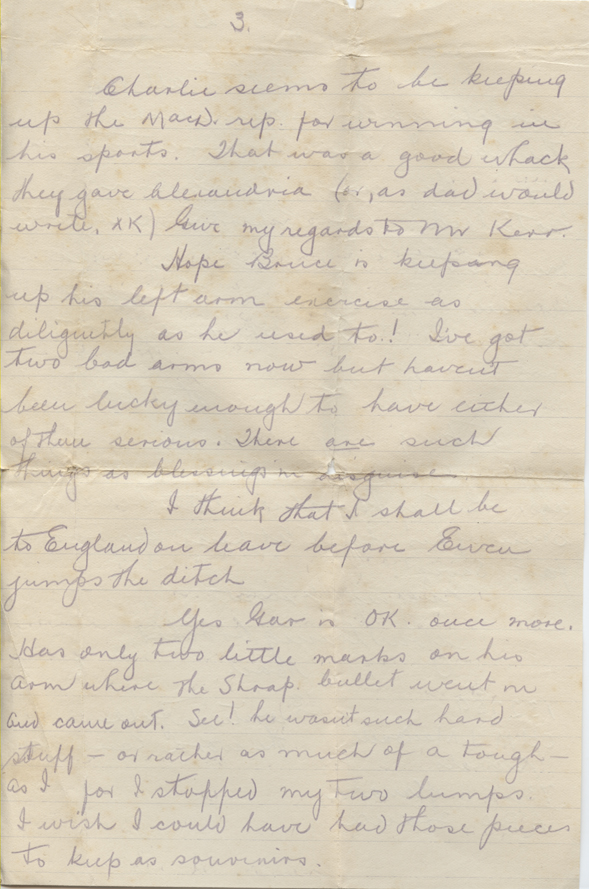 3.
Charlie seems to be keeping
up the Macd. rep. for winning in
his sports. That was a good whack
they gave Alexandria (or, as dad would
write, XK) Give my regards to Mr Kerr.
Hope Bruce is keeping
up his left arm exercise as
diligently as he used to.! I've got
two bad arms now but havent
been lucky enough to have either
of them serious. There are such
things as blessings in disguise
I think that I shall be
to England on leave before Ewen
jumps the ditch
Yes Gar is OK. once more.
Has only two little marks on his
arm where the Shrap. bullet went in
and came out. See! he wasnt such hard
stuff – or rather as much of a tough –
as I for I stopped my two lumps.
I wish I could have had those pieces
to keep as souvenirs.